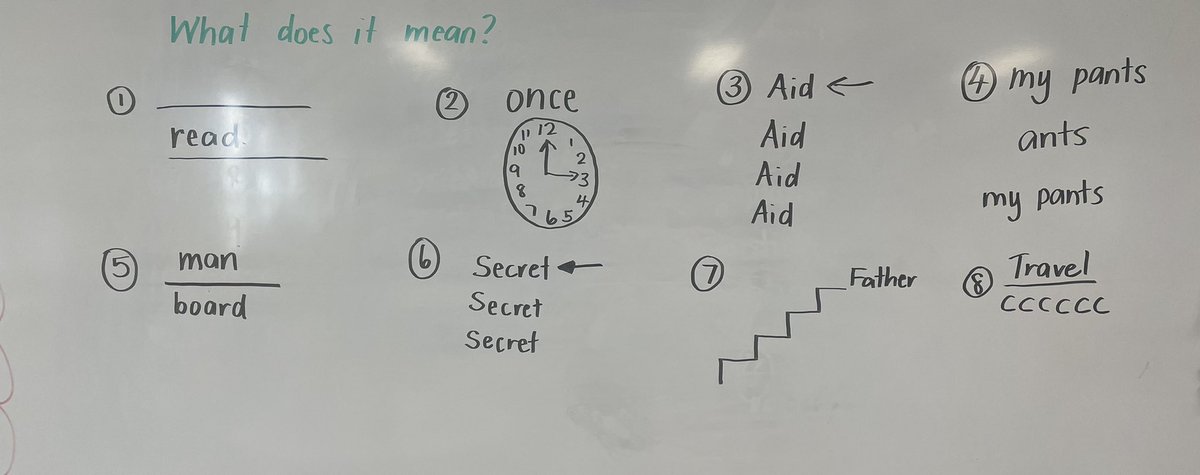 What does it mean?
① read.
② once
11 12 1
10 2
9 3
8 4
7 6 5
③ Aid ←
Aid
Aid
Aid
④ my pants
ants
my pants
⑤ man
board
⑥ Secret ←
Secret
Secret
⑦ Father
⑧ Travel
CCCCCC